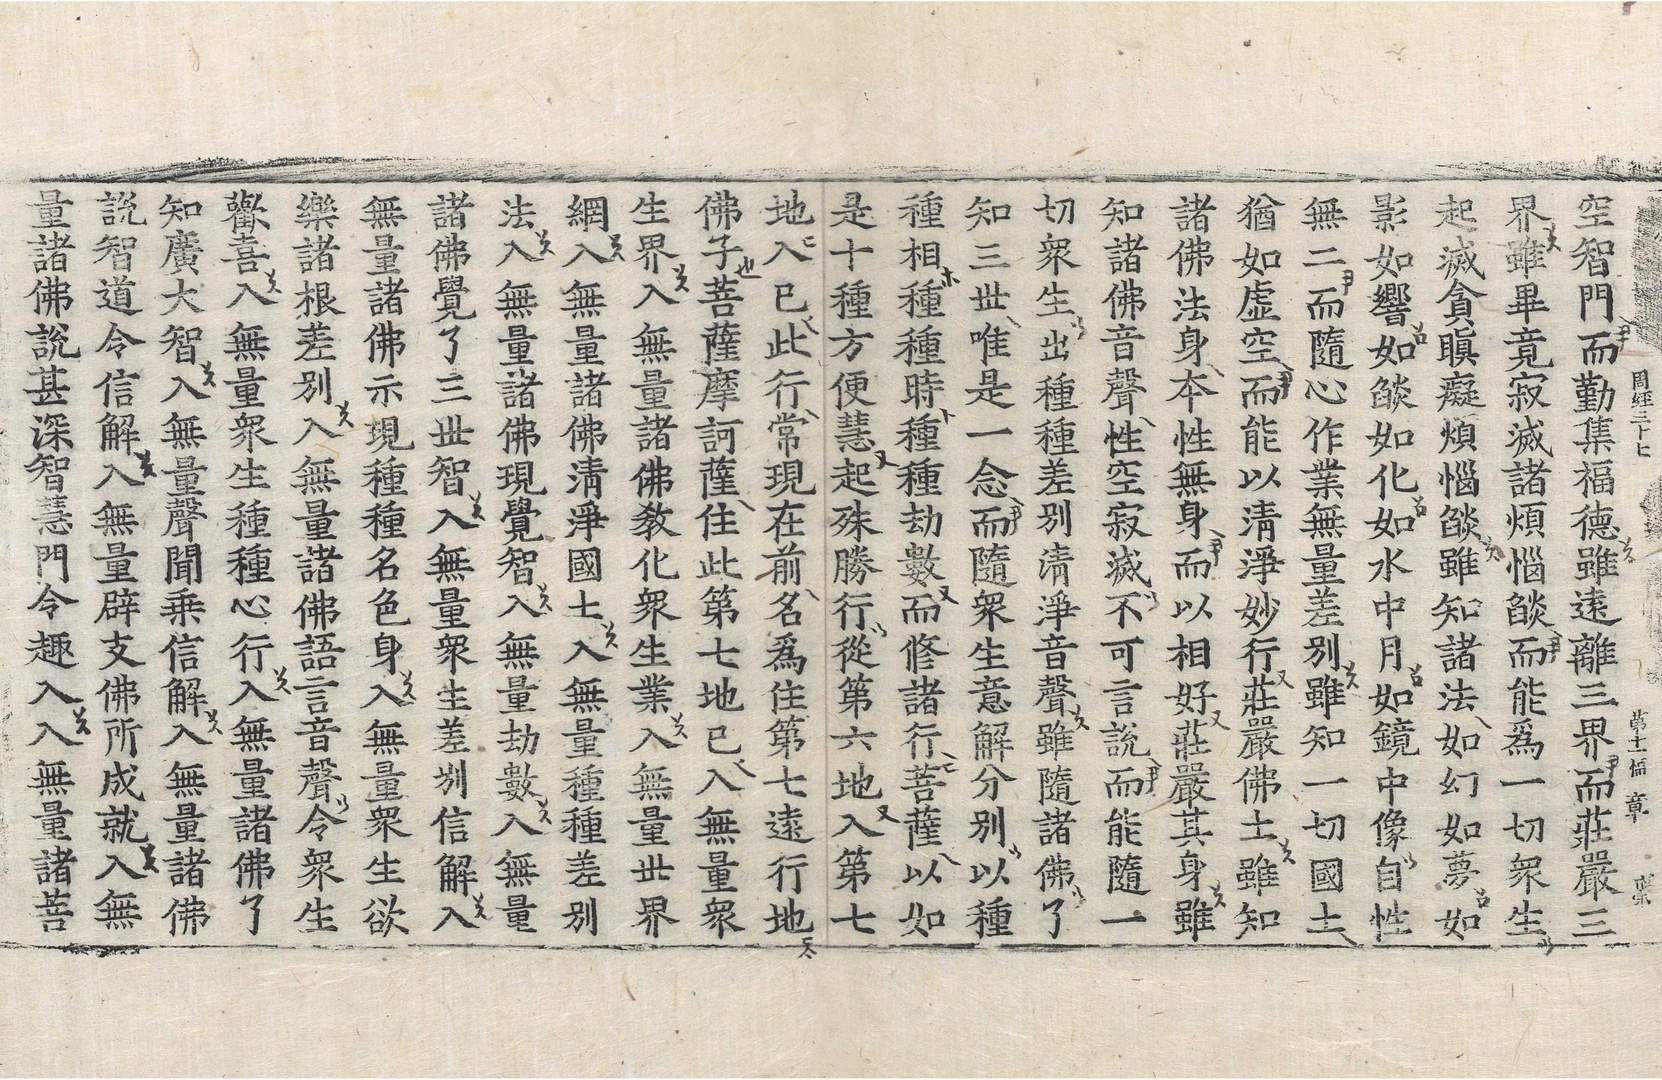 周經三十七 第十一幅 章
空智門而勤集福德雖遠離三界而莊嚴三
界雖畢竟寂滅諸煩惱㷔而能爲一切衆生
起滅貪瞋癡煩惱㷔雖知諸法如幻如夢如
影如響如㷔如化如水中月如鏡中像自性
無二而隨心作業無量差别雖知一切國土
猶如虛空而能以淸淨妙行莊嚴佛土雖知
諸佛法身本性無身而以相好莊嚴其身雖
知諸佛音聲性空寂滅不可言說而能隨一
切衆生出種種差别淸淨音聲雖隨諸佛了
知三世唯是一念而隨衆生意解分别以種
種相種種時種種劫數而修諸行菩薩以如
是十種方便慧起殊勝行從第六地入第七
地入已此行常現在前名爲住第七遠行地
佛子菩薩摩訶薩住此第七地已入無量衆
生界入無量諸佛敎化衆生業入無量世界
網入無量諸佛淸淨國土入無量種種差别
法入無量諸佛現覺智入無量劫數入無量
諸佛覺了三世智入無量衆生差别信解入
無量諸佛示現種種名色身入無量衆生欲
樂諸根差别入無量諸佛語言音聲令衆生
歡喜入無量衆生種種心行入無量諸佛了
知廣大智入無量聲聞乘信解入無量諸佛
說智道令信解入無量辟支佛所成就入無
量諸佛說甚深智慧門令趣入入無量諸菩